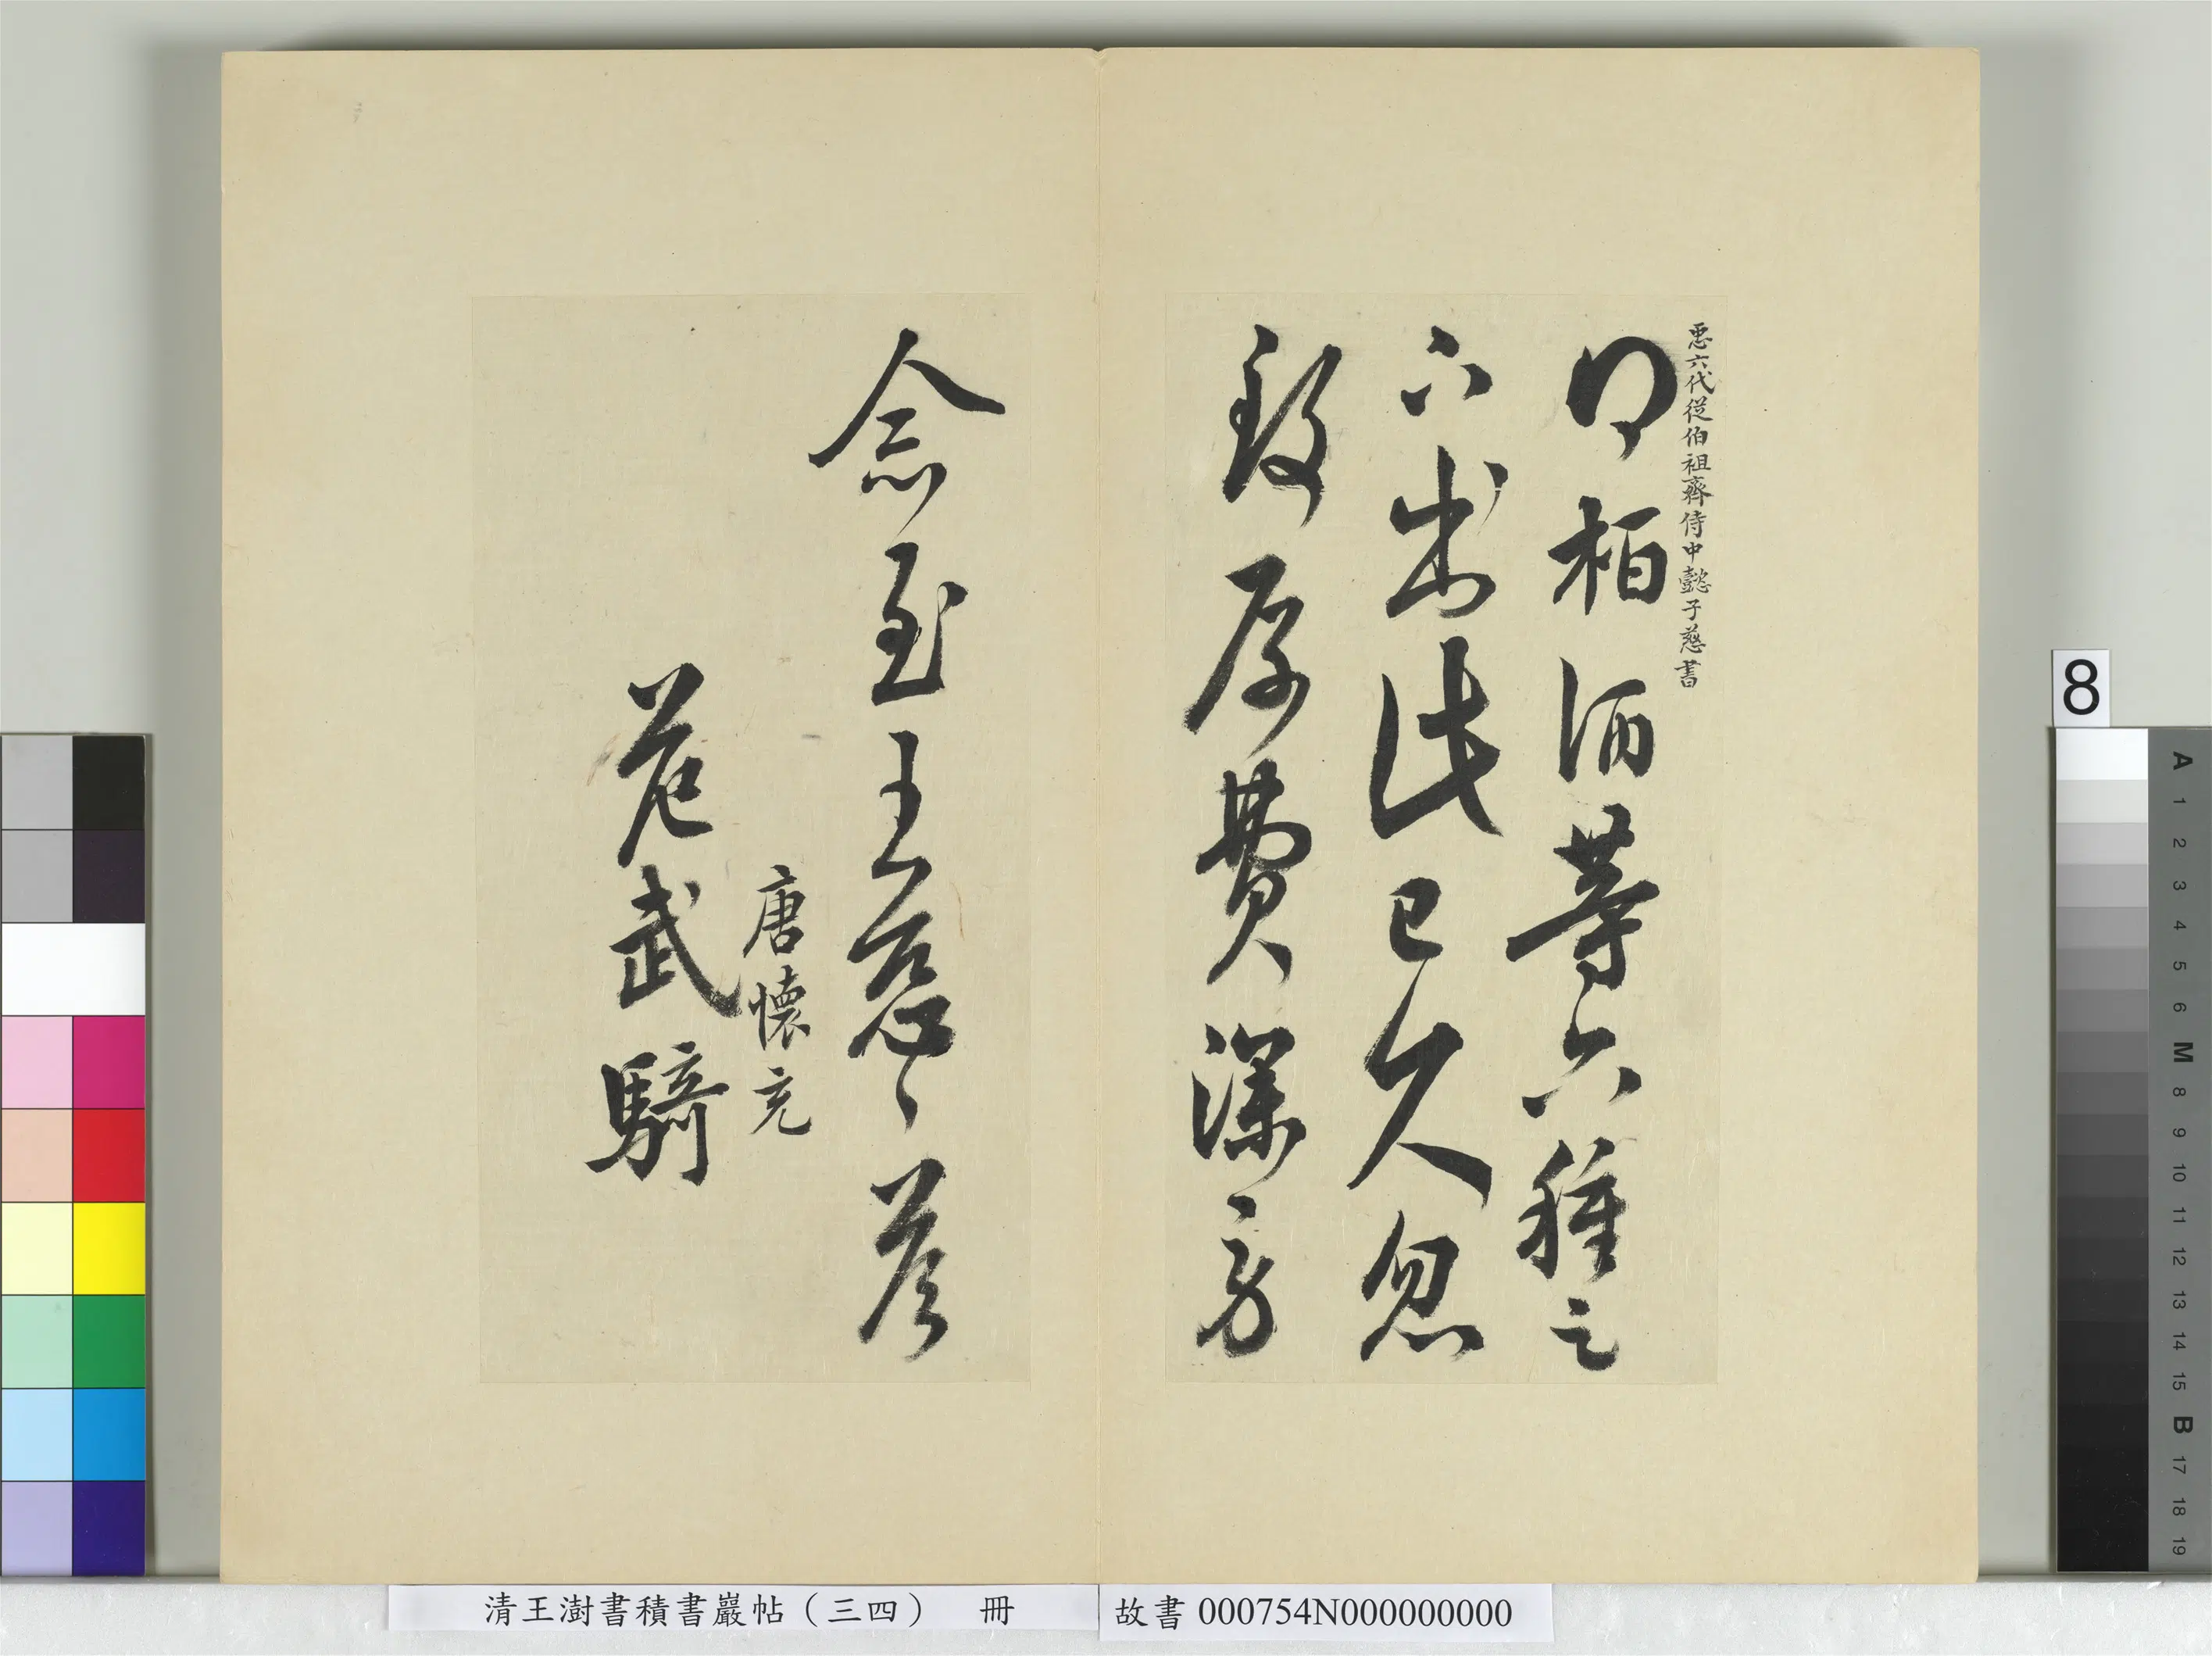 六代從伯祖齊侍中懿子慈書
柏酒等六種足
下出此已久忽
致厚費深勞
念至王慈具答
唐懷充
范武騎
8
清王澍書積書巖帖（三四） 冊
故書 000754N000000000
A 1 2 3 4 5 6 M 8 9 10 11 12 13 14 15 B 17 18 19